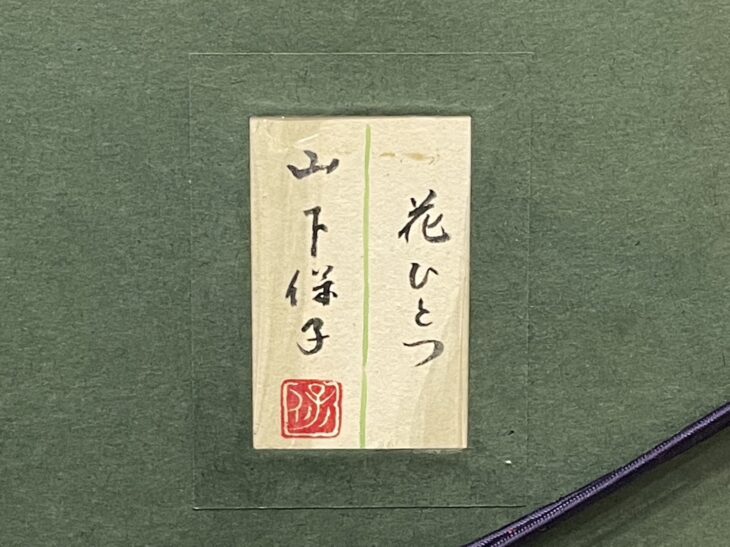 花ひとつ
山下保子